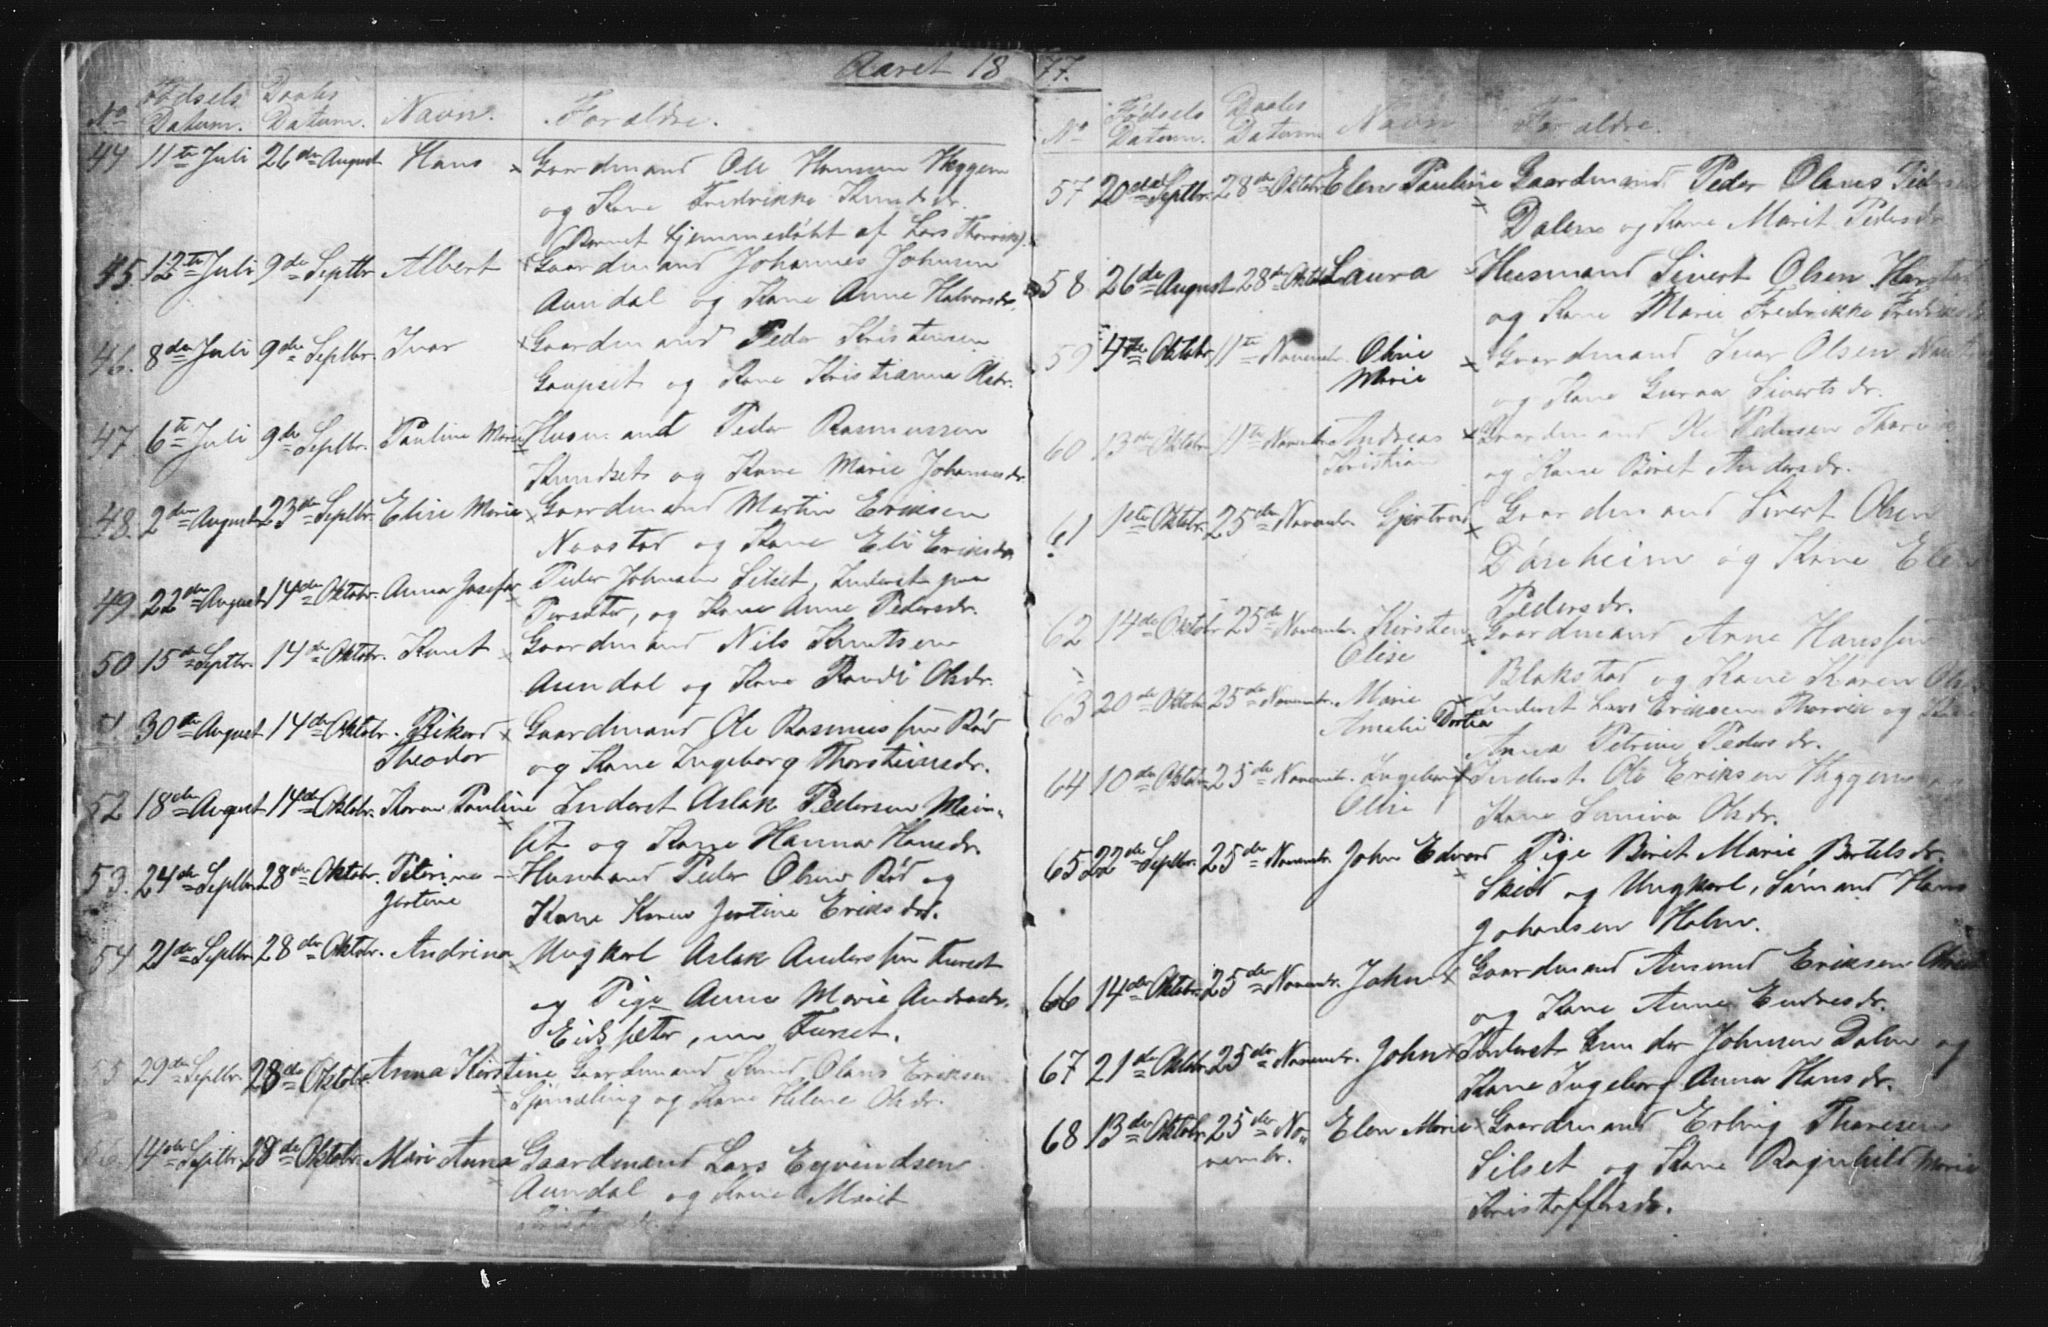 Aaret 1877.
No Fødsels Datum. Daabs Datum. Navn. Forældre.
44 11te Juli 26de August Hans Gaardmand Ole Hansen Heggem
og Kone Fredrikke Knudsdr.
(Barnet hjemmedøbt af Lars Thorvig).
45 12te Juli 9de Septbr Albert Gaardmand Johannes Johnsen
Aundal og Kone Anne Halvorsdr.
46. 8de Juli 9de Septbr. Ivar Gaardmand Peder Kristensen
Gaupset og Kone Kristianna Olsdr.
47. 6te Juli 9de Septbr. Pauline Marie Husmand Peder Rasmussen
Knudset og Kone Marie Johannesdr.
48. 2den August 23de Septbr. Elise Marie Gaardmand Martin Eriksen
Naastad og Kone Eli Eriksdr.
49. 22de August 14de Oktobr. Anna Josefa Peder Johnsen Silset, Inderst paa
og Kone Anne Pedersdr.
50 15de Septbr. 14de Oktobr. Knut Gaardmand Nils Knutsen
Aundal og Kone Randi Olsdr.
51 30te August 14de Oktobr. Rikard Gaardmand Ole Rasmussen Rød
Theodor og Kone Ingeborg Thorsteinsdr.
52 18de August 14de Oktobr. Karen Pauline Inderst Aslak Pedersen
og Kone Hanna Hansdr.
53. 24de Septbr. 28de Oktobr. Peterina Husmand Peder Olsen Rød og
Jertine Kone Karen Jertine Eriksdr.
54 21de Septbr. 28de Oktobr. Andrina Ungkarl Aslak Anderssen Furset
og Pige Anne Marie Andreasdr.
Eidssæter, nu Furset.
55 29de Septbr. 28de Oktobr. Anna Kirstine Gaardmand Knud Olaus Eriksen
og Kone Helene Olsdr.
56. 14de Septbr. 28de Oktobr. Mari Anna Gaardmand Lars Eyvendsen
Aundal og Kone Marit
No Fødsels Datum. Daabs Datum Navn Forældre.
57 20de Septbr. 28de Oktobr Elen Pauline Gaardmand Peder Olaus Pedersen
Dalen og Kone Marit Pedersdr
58. 26de August 28de Oktb Laura Husmand Sivert Olsen
og Kone Marie Fredrikke
59 4de Oktobr. 11te Novembr. Oline Gaardmand Ivar Olsen
Marie og Kone Guraa Sivertsdr.
60 13de Oktobr. 11te Novembr Andreas Gaardmand Ole Pedersen Thorvig
Kristian og Kone Beret Andersdr.
61 1ste Oktobr. 25de Novembr. Gjertrud Gaardmand Sivert Olsen
og Kone Elen
Pedersdr.
62 14de Oktobr 25de Novembr. Kirsten Gaardmand Arne Hanssen
Elise Blakstad og Kone Karen
63 20de Oktobr 25de Novembr. Marie Inderst Lars Eriksen Thorvig og Kone
Amalie Dortea Anna Petrine Pedersdr.
64 10de Oktobr 25de Novembr. Ingeborg Inderst. Ole Eriksen Heggem
Elise Kone Sunniva Olsdr.
65 22de Septbr. 25de Novembr. John Edvard Pige Beret Marie Bertelsdr.
og Ungkarl, Sømand Hans
Johansen Holm.
66 14de Oktobr. 25de Novembr. John Gaardmand Amund Eriksen
og Kone Anne Endresdr.
67 21de Oktobr. 25de Novembr. John Inderst Johnsen Dalen og
Kone Ingeborg Anna Hansdr.
68 13de Oktobr. 25de No- Elen Marie Gaardmand Erling Thoresen
vembr. Silset og Kone Ragnhild Marie
Kristoffersdr.